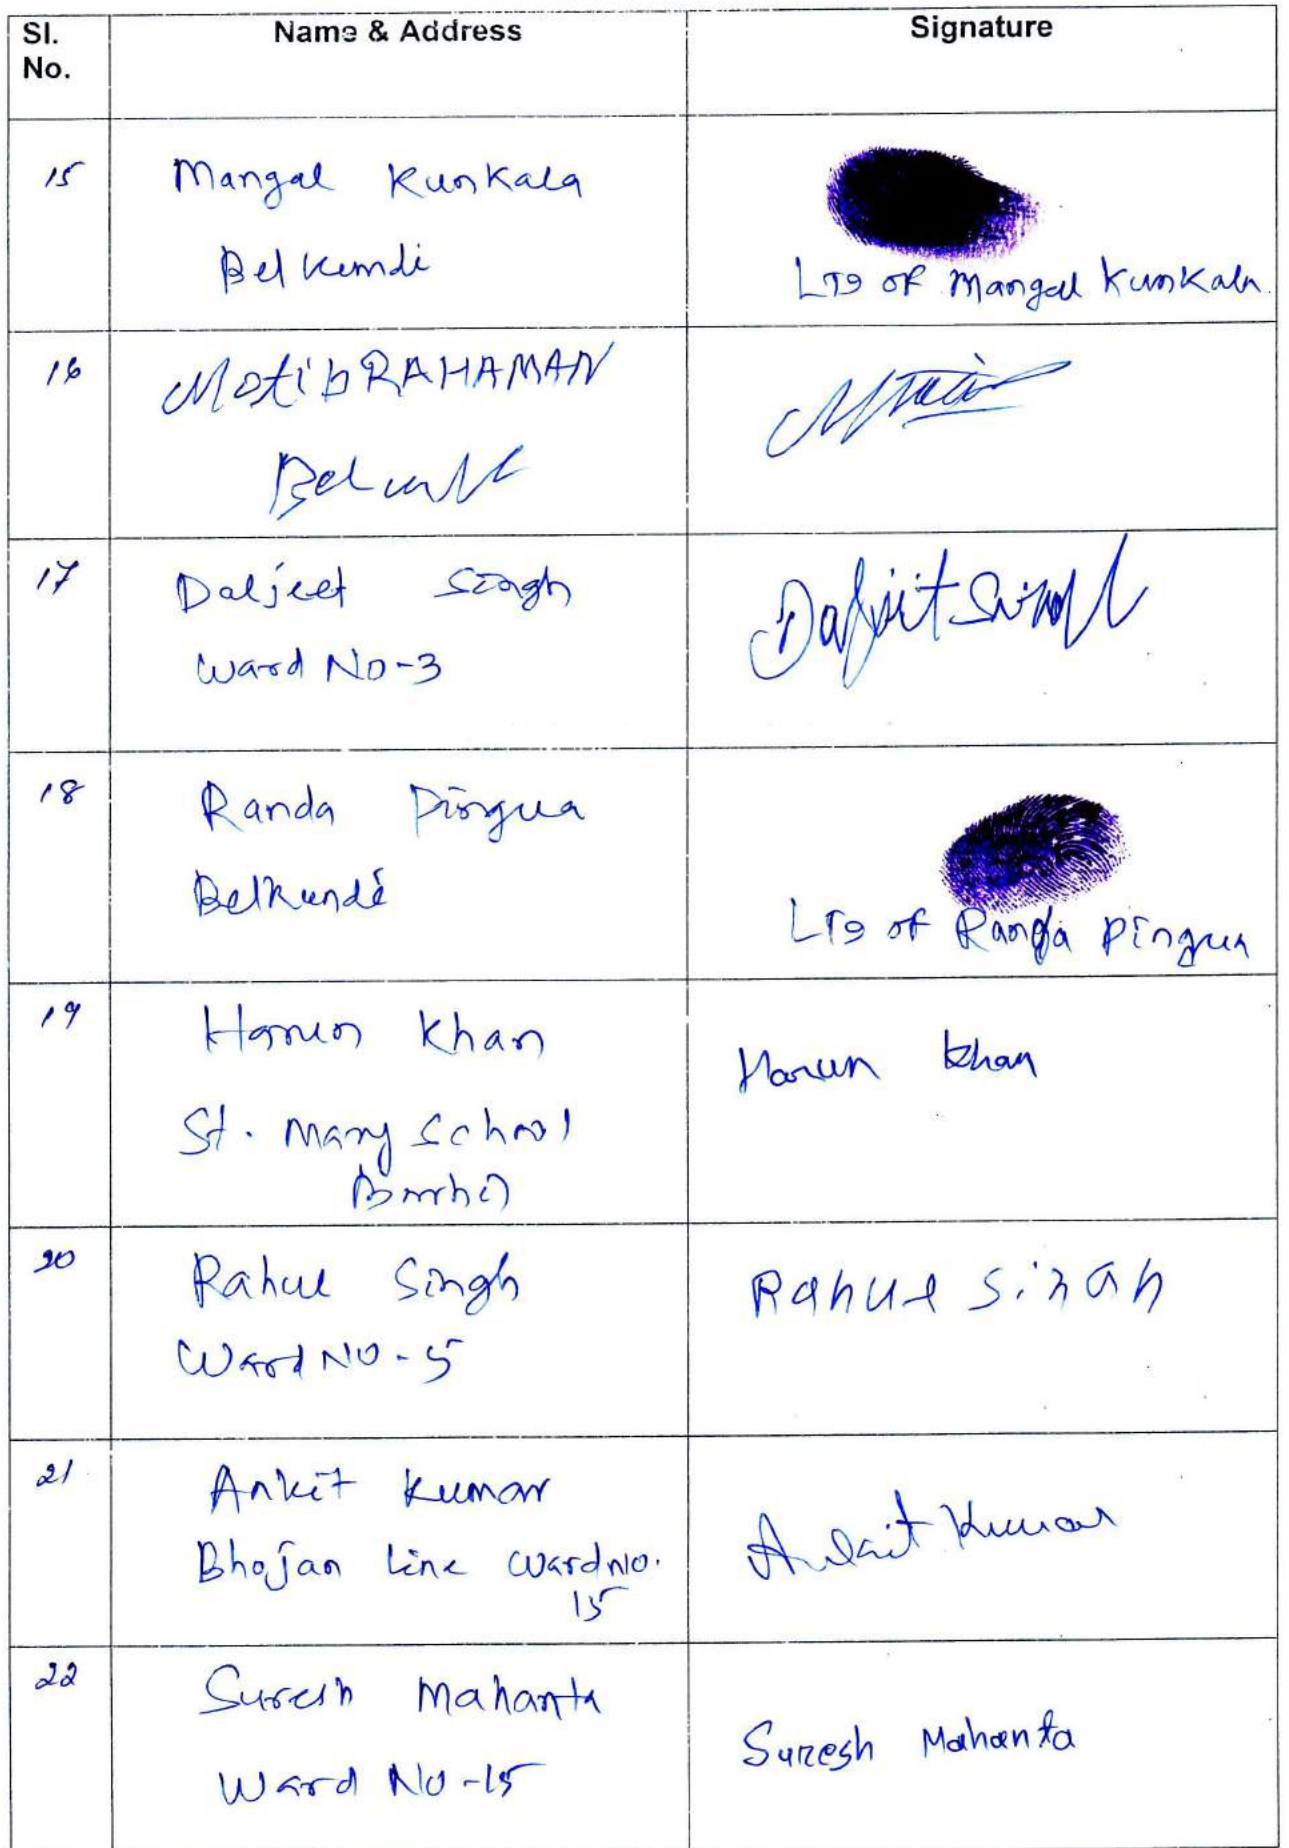 Sl. No.
Name & Address
Signature
15
Mangal Kunkala
Belkundi
LTI of Mangal Kunkala
16
MotibRAHAMAN
17
Daljeet Singh
Ward No-3
Daljit Singh
18
Randa Pingua
Belkundi
LTI of Randa Pingua
19
Harun Khan
St. Mary School
Barbil
Harun Khan
20
Rahul Singh
Ward NO-5
Rahul Singh
21
Ankit Kumar
Bhojan Line Ward No.
15
Ankit Kumar
22
Suresh Mahanta
Ward No-15
Suresh Mahanta